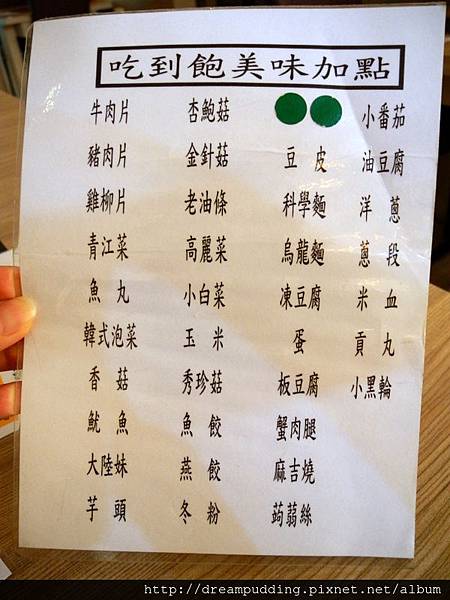 吃到飽美味加點
牛肉片 杏鮑菇 小番茄
豬肉片 金針菇 豆皮 油豆腐
雞柳片 老油條 科學麵 洋蔥
青江菜 高麗菜 烏龍麵 蔥段
魚丸 小白菜 凍豆腐 米血
韓式泡菜 玉米 蛋 貢丸
香菇 秀珍菇 板豆腐 小黑輪
魷魚 魚餃 蟹肉腿
大陸妹 燕餃 麻吉燒
芋頭 冬粉 蒟蒻絲
http://dreampudding.pixnet.net/album